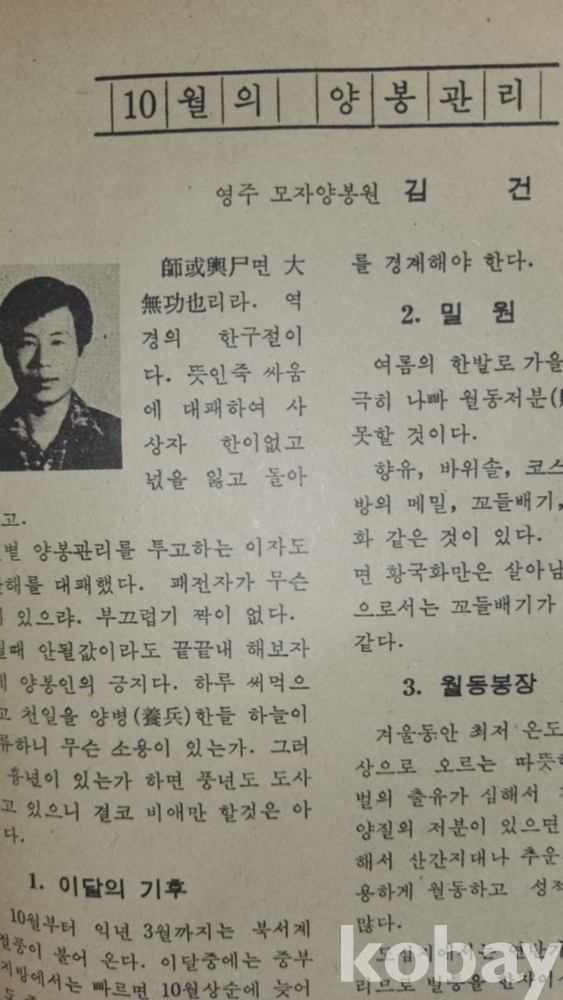 10월의 양봉관리
영주 모자양봉원 김 건
師或輿尸면 大
無功也리라. 역
경의 한구절이
다. 뜻인즉 싸움
에 대패하여 사
상자 한이없고
넋을 잃고 돌아
고.
별 양봉관리를 투고하는 이자도
해를 대패했다. 패전자가 무슨
있으랴. 부끄럽기 짝이 없다.
될때 안될값이라도 끝끝내 해보자
양봉인의 긍지다. 하루 써먹으
고 천일을 양병(養兵)한들 하늘이
류하니 무슨 소용이 있는가. 그러
흉년이 있는가 하면 풍년도 도사
고 있으니 결코 비애만 할것은 아
다.
1. 이달의 기후
10월부터 익년 3월까지는 북서계
절풍이 불어 온다. 이달중에는 중부
지방에서는 빠르면 10월상순에 늦어
를 경계해야 한다.
2. 밀 원
여롬의 한발로 가을
극히 나빠 월동저분(
못할 것이다.
향유, 바위솔, 코스
방의 메밀, 꼬들배기,
화 같은 것이 있다.
면 황국화만은 살아남
으로서는 꼬들배기가
같다.
3. 월동봉장
겨울동안 최저 온도
상으로 오르는 따뜻
벌의 출유가 심해서
양질의 저분이 있으면
해서 산간지대나 추운
용하게 월동하고 성적
많다.
도심지에서는 연탄가
리므로 발봉을
kobay